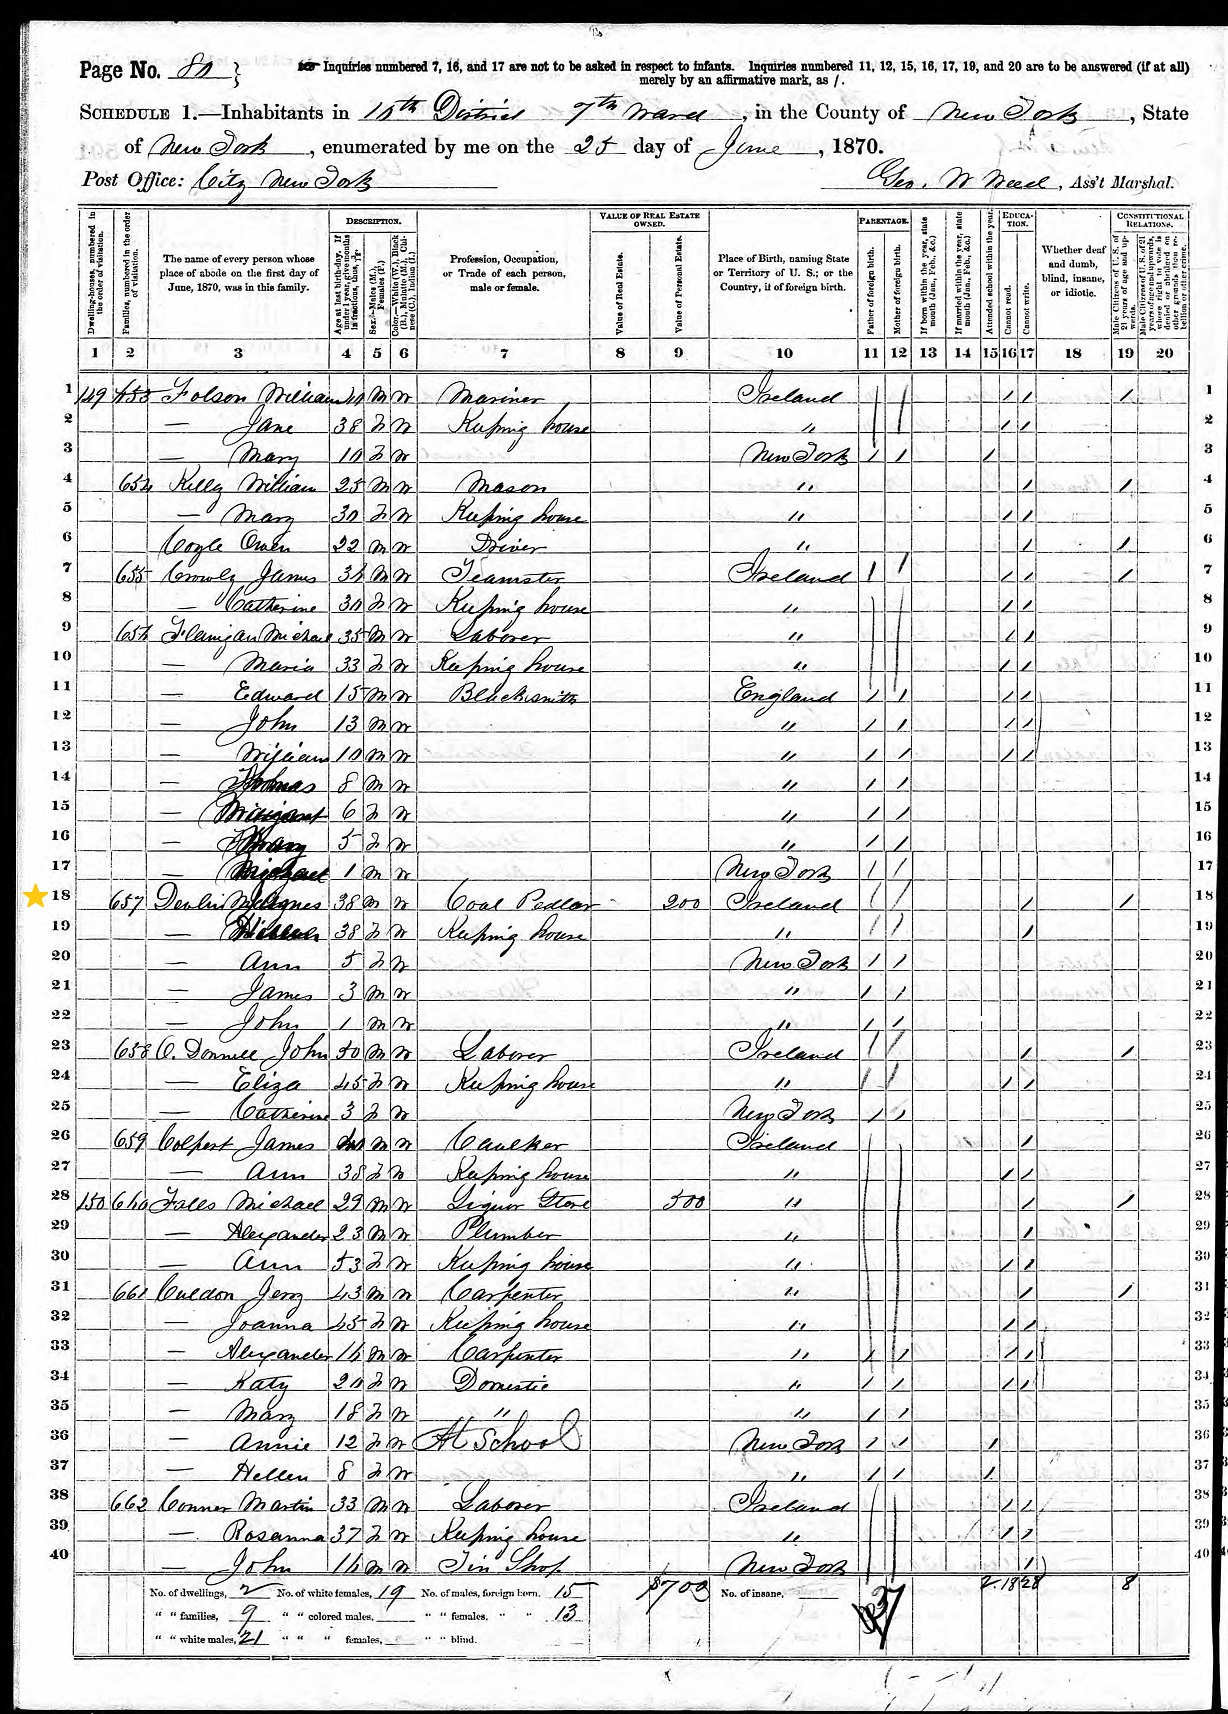 Page No. 80 } Inquiries numbered 7, 16, and 17 are not to be asked in respect to infants. Inquiries numbered 11, 12, 15, 16, 17, 19, and 20 are to be answered (if at all)
merely by an affirmative mark, as /.
SCHEDULE 1.—Inhabitants in 10th District 7th Ward, in the County of New York, State
of New York, enumerated by me on the 25 day of June, 1870.
Post Office: City New York Geo. W , Ass't Marshal.
Dwelling-house, numbered in the order of visitation.
Families, numbered in the order of visitation.
The name of every person whose place of abode on the first day of June, 1870, was in this family.
DESCRIPTION.
Age at last birth-day. If under 1 year, give months in fractions, thus, 3/12
Sex.—Males (M.), Females (F.)
Color.—White (W.), Black (B.), Mulatto (M.), Chinese (C.), Indian (I.)
Profession, Occupation, or Trade of each person, male or female.
VALUE OF REAL ESTATE OWNED.
Value of Real Estate.
Value of Personal Estate.
Place of Birth, naming State or Territory of U. S.; or the Country, if of foreign birth.
PARENTAGE.
Father of foreign birth.
Mother of foreign birth.
If born within the year, state month (Jan., Feb., &c.)
If married within the year, state month (Jan., Feb., &c.)
Attended school within the year.
EDUCATION.
Cannot read.
Cannot write.
Whether deaf and dumb, blind, insane, or idiotic.
CONSTITUTIONAL RELATIONS.
Male Citizens of U. S. of 21 years of age and upwards.
Male Citizens of U. S. of 21 years of age and upwards, whose right to vote is denied or abridged on other grounds than rebellion or other crime.
1 2 3 4 5 6 7 8 9 10 11 12 13 14 15 16 17 18 19 20
1 149 Folson William 40 M W Mariner Ireland / / / / / 1
2 — Jane 38 F W Keeping house " / / / / 2
3 — Mary 10 F W New York / / / 3
4 654 Kelly William 25 M W Mason " / / 4
5 — Mary 30 F W Keeping house " / / 5
6 Coyle Owen 22 M W Driver " / / 6
7 655 Crowly James 34 M W Teamster Ireland / / / / / 7
8 — Catherine 30 F W Keeping house " / / / / 8
9 656 Flanigan Michael 35 M W Laborer " / / / / 9
10 — Maria 33 F W Keeping house " / / / / 10
11 — Edward 15 M W Blacksmith England / / / / 11
12 — John 13 M W " / / / / 12
13 — William 10 M W " / / / / 13
14 — Thomas 8 M W " / / 14
15 — Margaret 6 F W " / / 15
16 — Mary 5 F W " / / 16
17 — Michael 1 M W New York / / 17
18 657 Devlin 38 M W Coal Pedlar 200 Ireland / / / / 18
19 — 38 F W Keeping house " / / / 19
20 — Ann 5 F W New York / / 20
21 — James 3 M W " / / 21
22 — John 1 M W " / / 22
23 658 O. Donnell John 50 M W Laborer Ireland / / / / 23
24 — Eliza 45 F W Keeping house " / / / / 24
25 — Catherine 3 F W New York / / 25
26 659 Colpert James M W Caulker Ireland / / / 26
27 — Ann 38 F W Keeping house " / / / / 27
28 150 660 Falls Michael 29 M W Liquor Store 500 " / / / / 28
29 — Alexander 23 M W Plumber " / / / 29
30 — Ann 53 F W Keeping house " / / / / 30
31 661 Culdon Jerry 43 M W Carpenter " / / / / 31
32 — Joanna 45 F W Keeping house " / / / / 32
33 — Alexander 16 M W Carpenter " / / / / 33
34 — Katy 20 F W Domestic " / / / / 34
35 — Mary 18 F W " " / / 35
36 — Annie 12 F W At School New York / / / 36
37 — Hellen 8 F W " / / / 37
38 662 Conner Martin 33 M W Laborer Ireland / / / / 38
39 — Rosanna 37 F W Keeping house " / / / / 39
40 — John 16 M W Tin Shop New York / / / 40
No. of dwellings, 2 No. of white females, 19 No. of males, foreign born. 15 $700 No. of insane, 37 2 18 28 8
" " families, 9 " " colored males, " " females. " " 13
" " white males, 21 " " " females, " " blind.